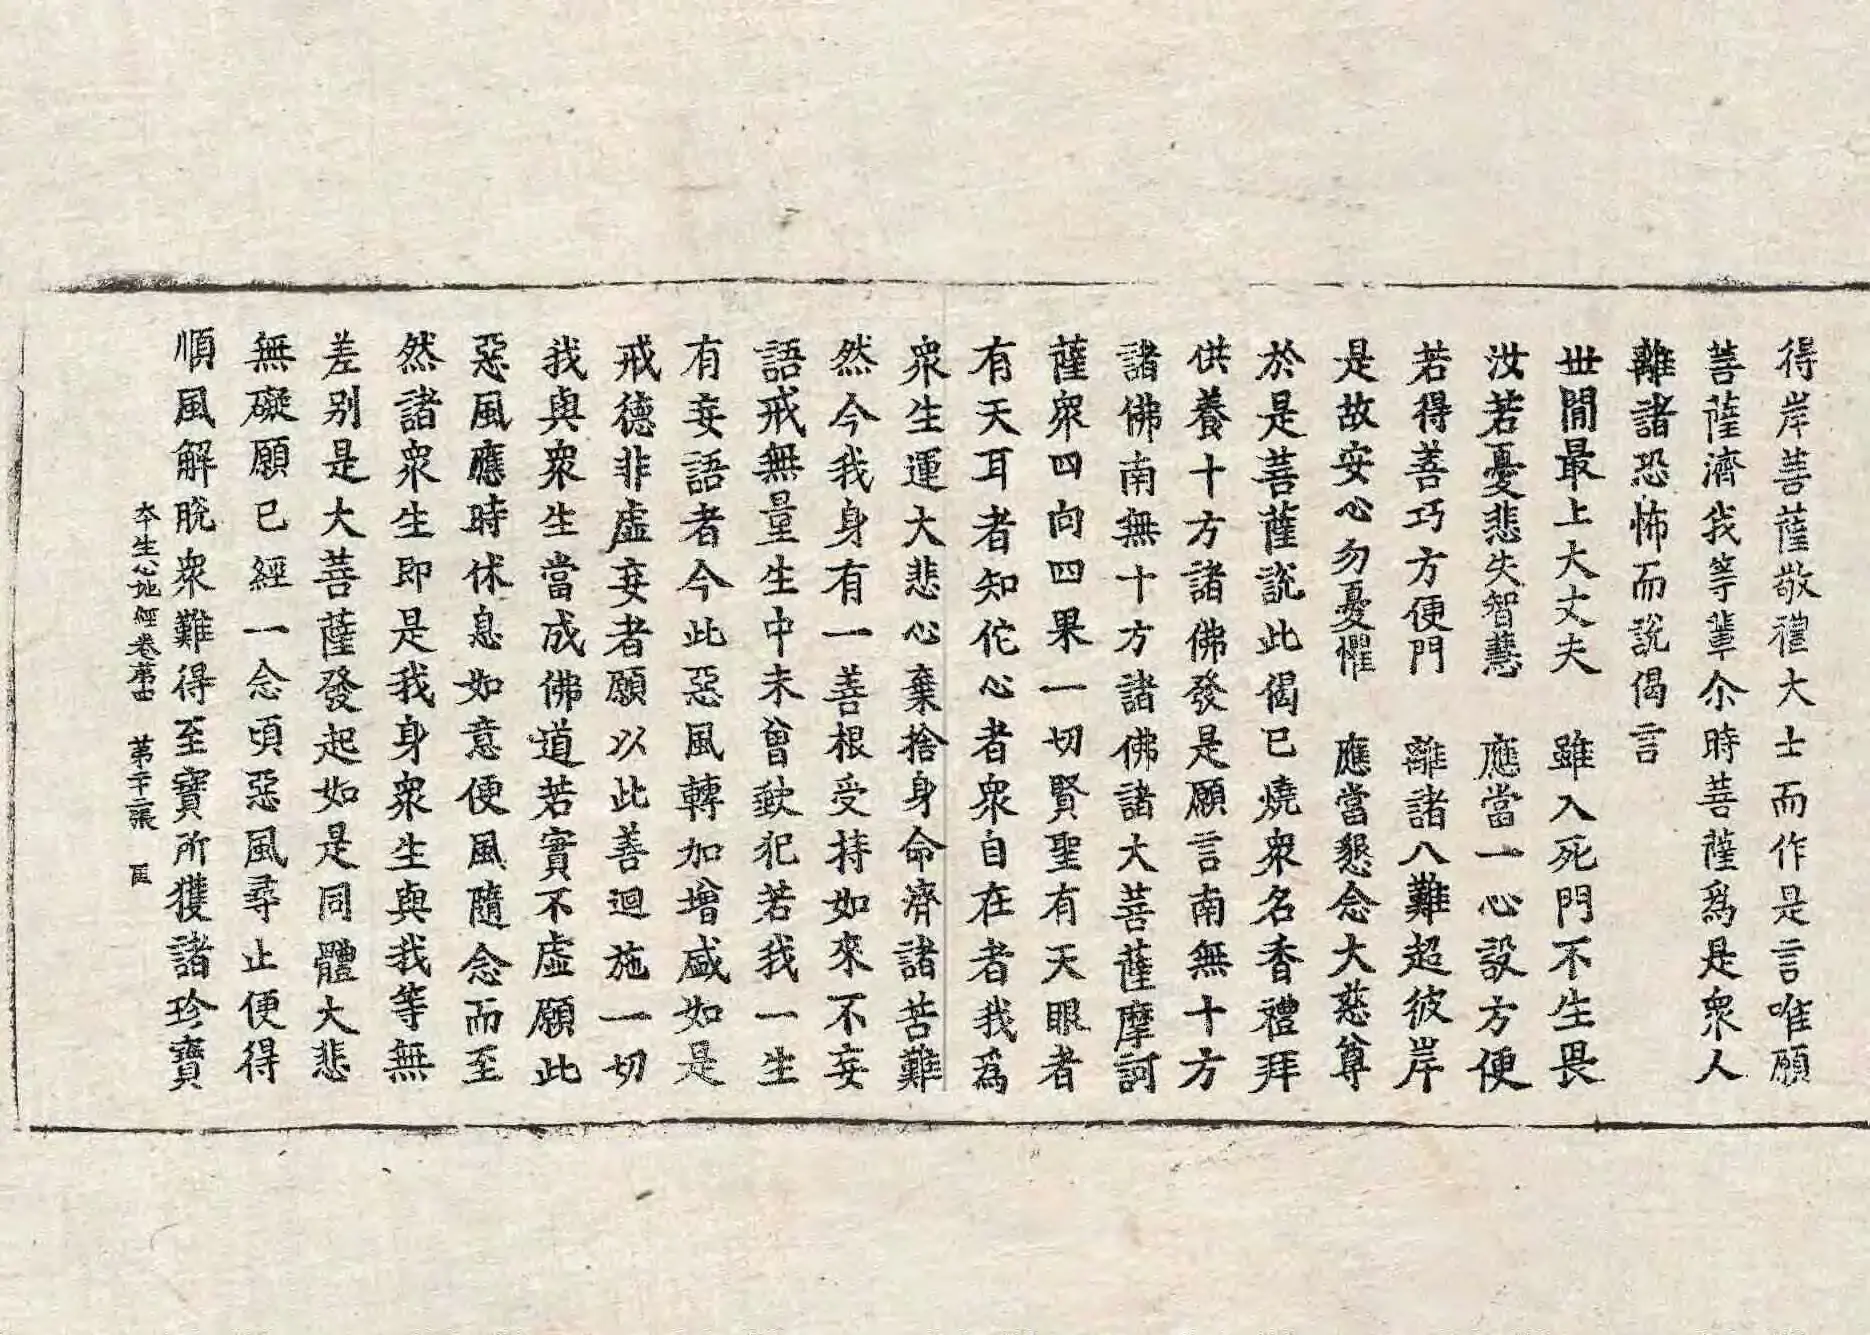 得岸菩薩敬禮大士而作是言唯願
菩薩濟我等輩尒時菩薩爲是衆人
離諸恐怖而說偈言
丗閒最上大丈夫　雖入死門不生畏
汝若憂悲失智慧　應當一心設方便
若得善巧方便門　離諸八難超彼岸
是故安心勿憂懼　應當懇念大慈尊
於是菩薩說此偈已燒衆名香禮拜
供養十方諸佛發是願言南無十方
諸佛南無十方諸佛諸大菩薩摩訶
薩衆四向四果一切賢聖有天眼者
有天耳者知佗心者衆自在者我爲
衆生運大悲心棄捨身命濟諸苦難
然今我身有一善根受持如來不妄
語戒無量生中未曾欻犯若我一生
有妄語者今此惡風轉加增盛如是
戒德非虛妄者願以此善迴施一切
我與衆生當成佛道若實不虛願此
惡風應時休息如意便風隨念而至
然諸衆生即是我身衆生與我等無
差別是大菩薩發起如是同體大悲
無礙願已經一念頃惡風尋止便得
順風解脫衆難得至寶所獲諸珍寶
本生心地經卷第七　第二十二張　匡